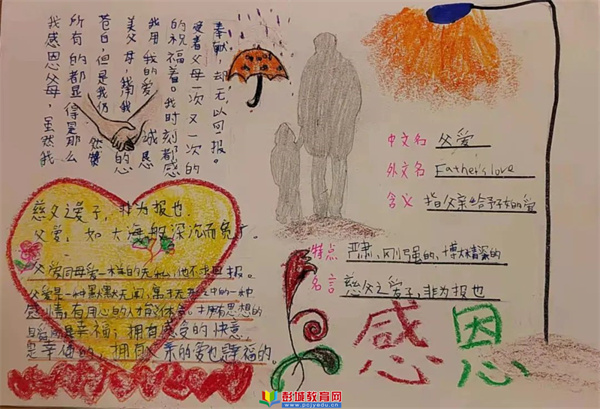 我感恩父母，虽然我
所有的都显得是那么
苍白，但是我仍然赞
美父母，
我用我的爱诚恳的心
的祝福着。我时刻都感
受着父母一次又一次的
奉献，却无以可报。
中文名 父爱
外文名 Father's love
含义 指父亲给予子女的爱
特点 严肃、刚强的、博大精深的
名言 慈父之爱子，非为报也
慈父之爱子，非为报也.
父爱，如大海般深沉而宽广.
父爱同母爱一样的无私，他不求回报。
父爱是一种默默无闻，寓于无形之中的一种
感情，有用心的人才能体会。拥有思想的
是幸福；拥有感受的快意
是幸福的；拥有父亲的爱也是幸福的.
感恩
彭城教育网
www.pcjyedu.cn